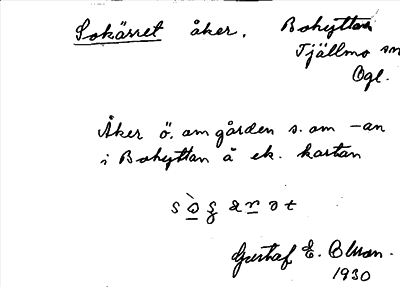 Sokärret åker. Bohyttan
Tjällmo sn
Ögl.
Åker ö. om gården s. om -an
i Bohyttan å ek. kartan
Gustaf E. Olsson.
1930